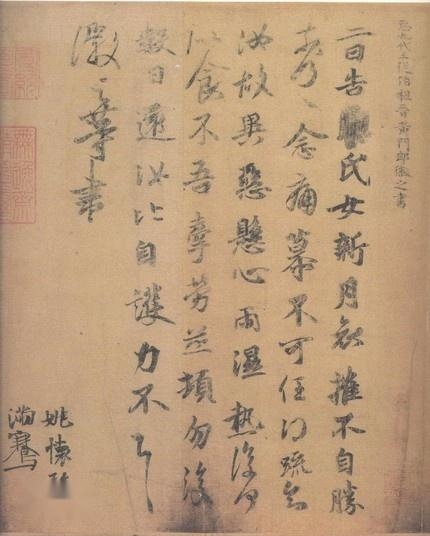 臣九代三從伯祖晉黃門郎徽之書
二日告氏女新月哀摧不自勝
奈何奈何念痛慕不可任得疏知
汝故異惡懸心雨濕熱復何
似食不吾牽勞並頓勿復
數日還汝比自護力不一一
徽之等書
姚懷珍
滿騫